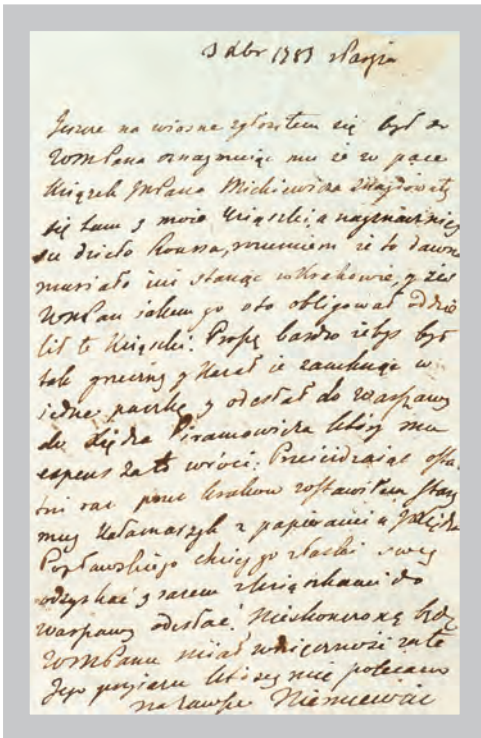 3 Xbr 1783 z Paryża
Jeszcze na wiosnę zgłosiłem się był do
WMPana oznaymuiąc mu że w pace
Książek JmPana Mickiewicza znaydowały
się tam y moie Książki, a nayznacznieysze
dzieło Roussa, mniemam że to dawno
musiało iuż stanąć w Krakowie, y że
WMPan iakem go oto obligował oddzie
lił te Książki. Proszę bardzo żebyś był
tak grzeczny y kazał ie zamknąć w
iedne paczkę y odesłał do Warszawy
do Xiędza Piramowicza który mu
expens za to wróci. Prześcidzaiąc osta
tni raz przez Krakow zostawiłem stary
muy Kałamarzyk z papierami u JXiędza
Popławskiego chciey go z łaski swey
odzyskać y razem z książkami do
Warszawy odesłać. Nieskończoną będę
WMPanu miał wdzięczność za te
Jego przyiaźń któryey się polecam
na zawsze Niemcewicz